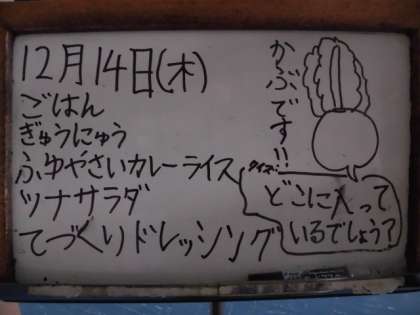 12月14日(木)
ごはん
ぎゅうにゅう
ふゆやさいカレーライス
ツナサラダ
てづくりドレッシング
かぶです!!
クイズ:
どこに入って
いるでしょう?